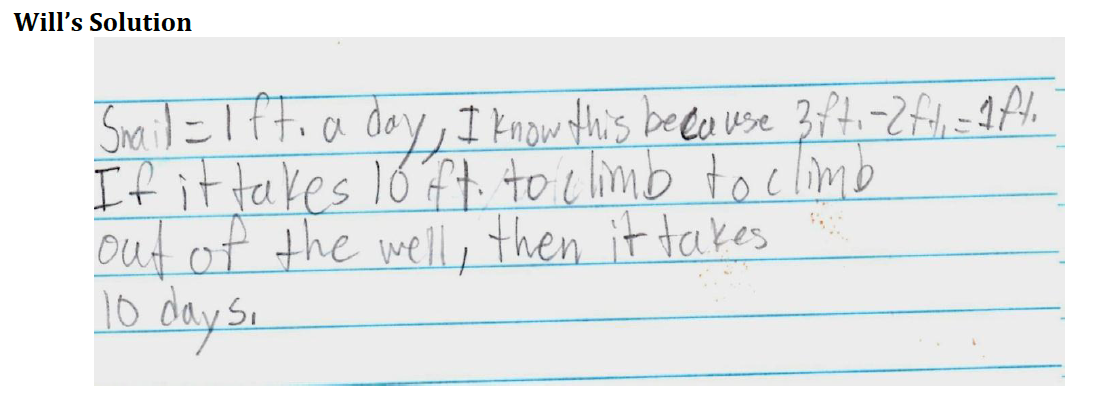 Will's Solution
Snail = 1 ft. a day, I know this because 3ft. - 2ft. = 1ft.
If it takes 10 ft. to climb to climb
out of the well, then it takes
10 days.